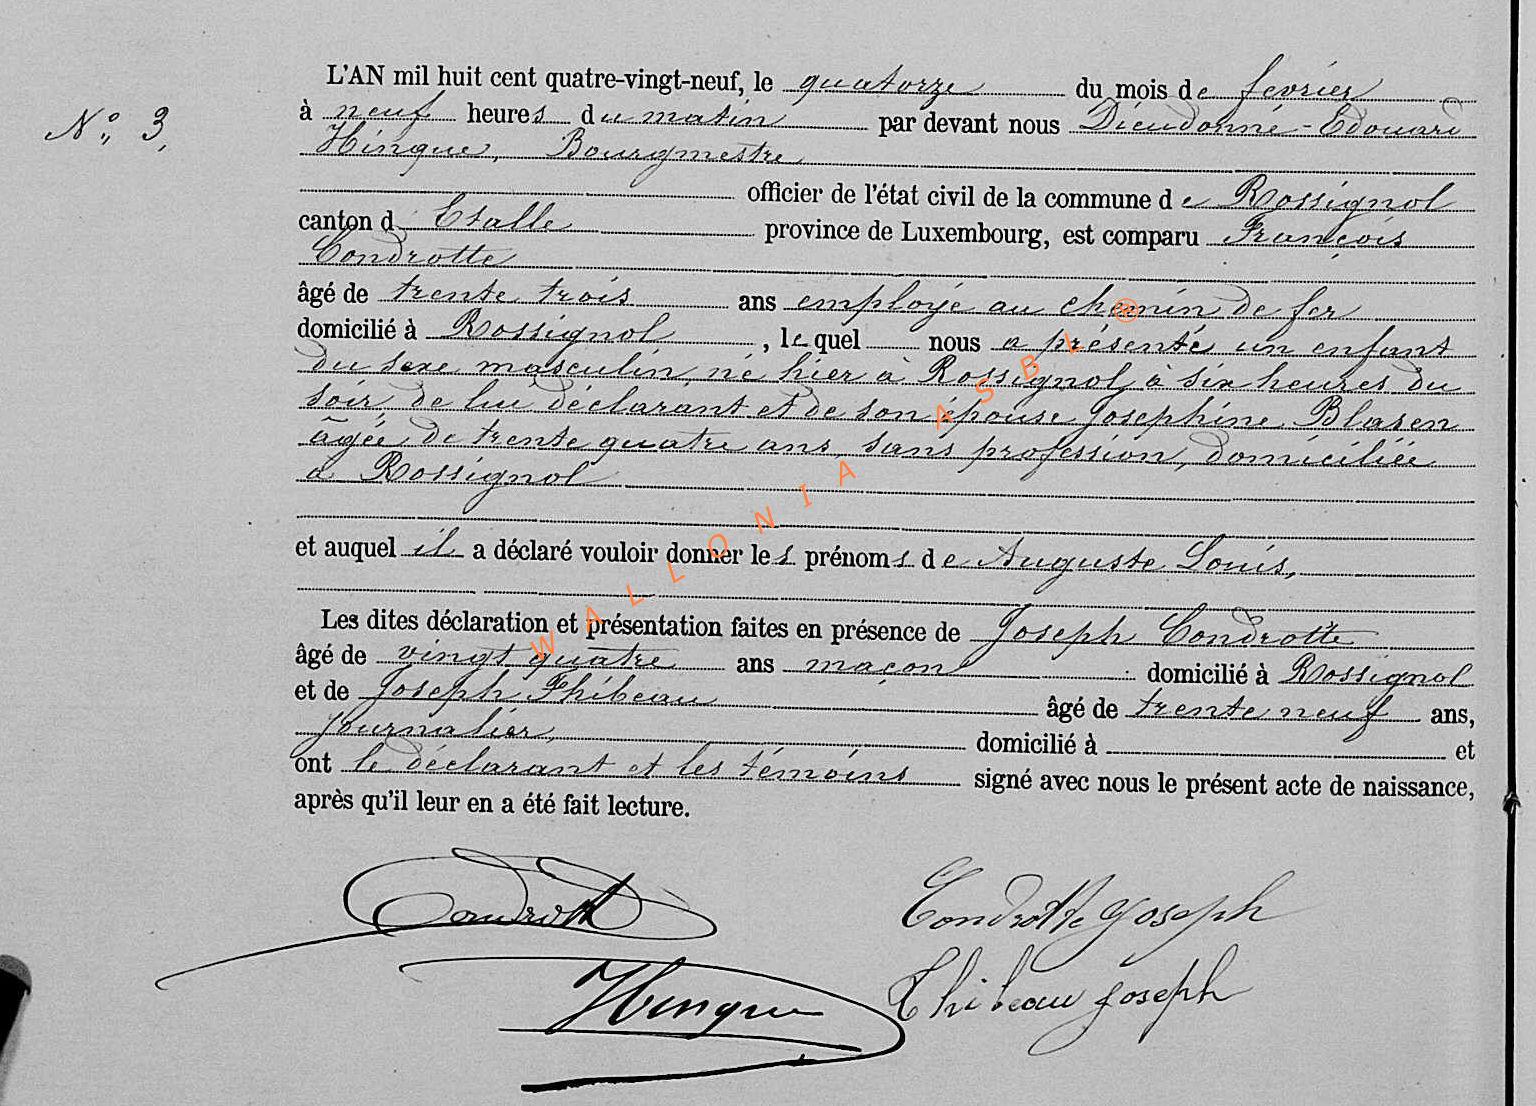 L'AN mil huit cent quatre-vingt-neuf, le quatorze du mois de février
N° 3, à neuf heures du matin par devant nous Dieudonné-Edouard
Hingue, Bourgmestre
officier de l'état civil de la commune de Rossignol
canton d Etalle province de Luxembourg, est comparu François
Condrotte
âgé de trente trois ans employé au chemin de fer
domicilié à Rossignol, lequel nous a présenté un enfant
du sexe masculin, né hier à Rossignol, à six heures du
soir, de lui déclarant et de son épouse Josephine Blasen
âgée de trente quatre ans, sans profession, domiciliée
à Rossignol
et auquel il a déclaré vouloir donner les prénoms de Auguste Louis,
Les dites déclaration et présentation faites en présence de Joseph Condrotte
âgé de vingt quatre ans maçon domicilié à Rossignol
et de Joseph Thibeau âgé de trente neuf ans,
journalier, domicilié à et
ont le déclarant et les témoins signé avec nous le présent acte de naissance,
après qu'il leur en a été fait lecture.
Condrotte Condrotte Joseph
Hingue Thibeau Joseph
WALLONIA ASBL ®